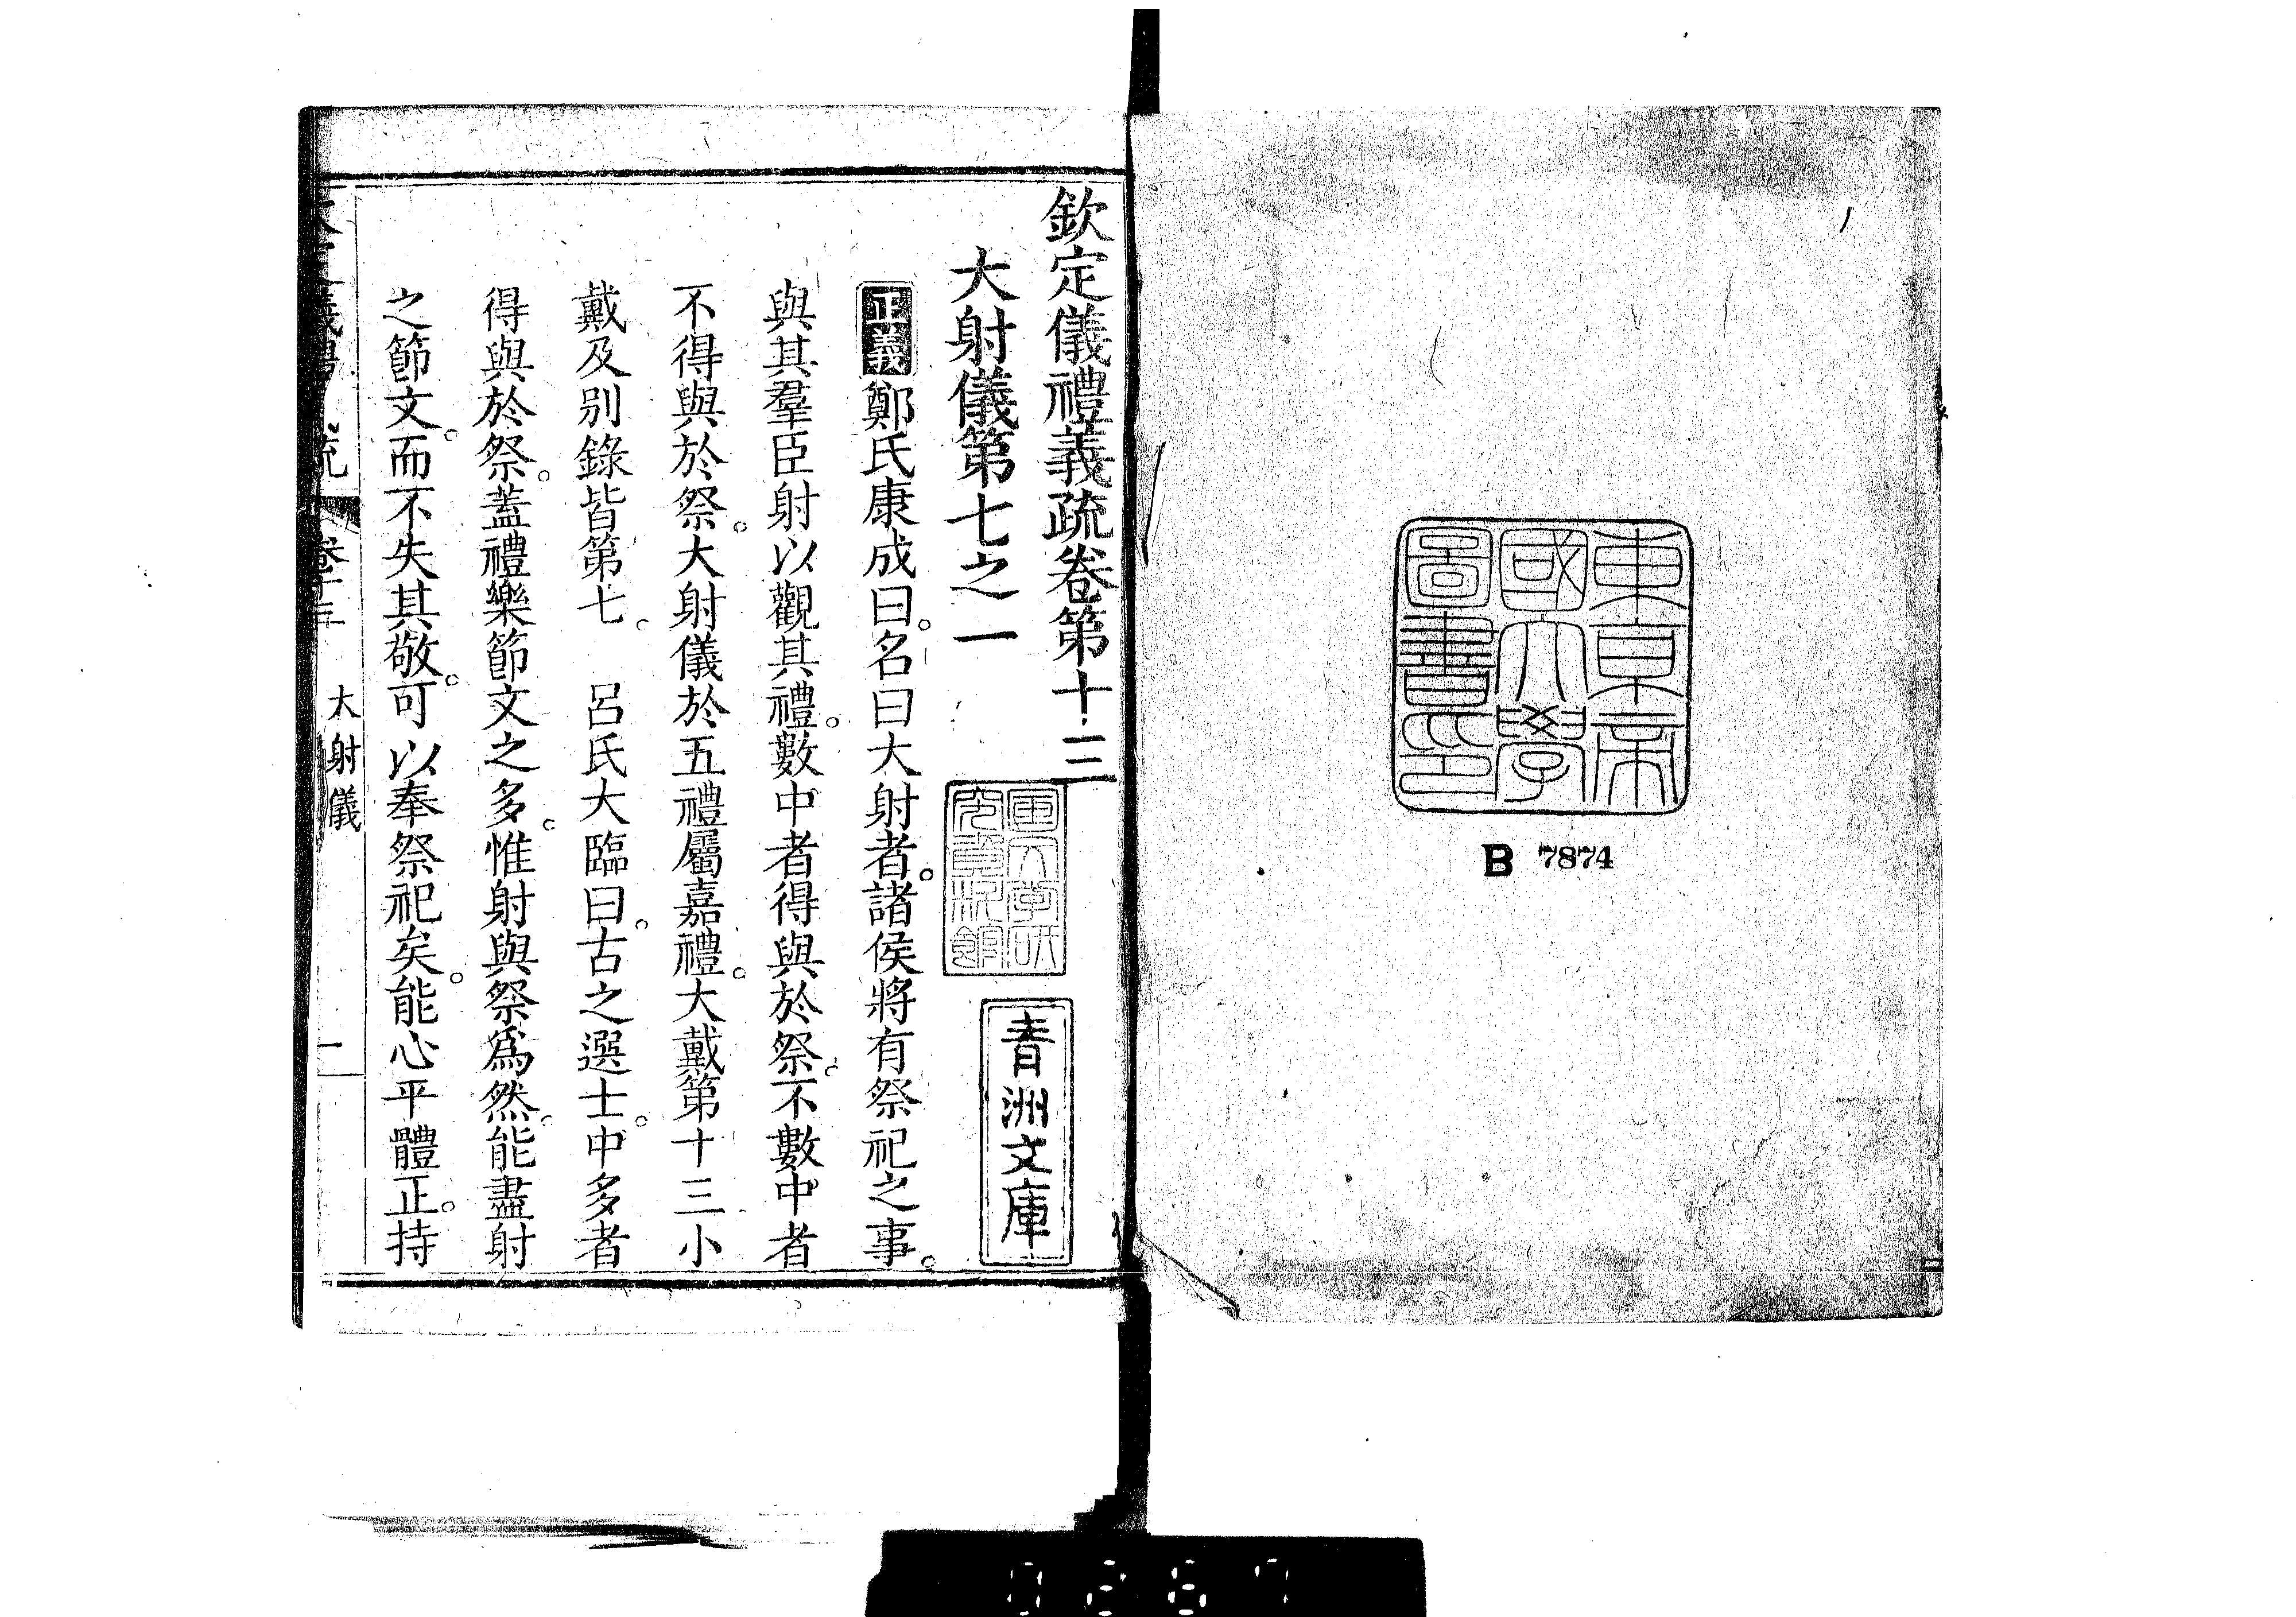 東京帝
國大學
圖書印
B 7874
欽定儀禮義疏卷第十三
大射儀第七之一
青洲文庫
正義鄭氏康成曰。名曰大射者。諸侯將有祭祀之事。
與其羣臣射以觀其禮。數中者得與於祭。不數中者
不得與於祭。大射儀於五禮屬嘉禮。大戴第十三小
戴及別錄皆第七。 呂氏大臨曰。古之選士。中多者
得與於祭。蓋禮樂節文之多。惟射與祭爲然。能盡射
之節文。而不失其敬。可以奉祭祀矣。能心平體正。持
卷十三 大射儀 一